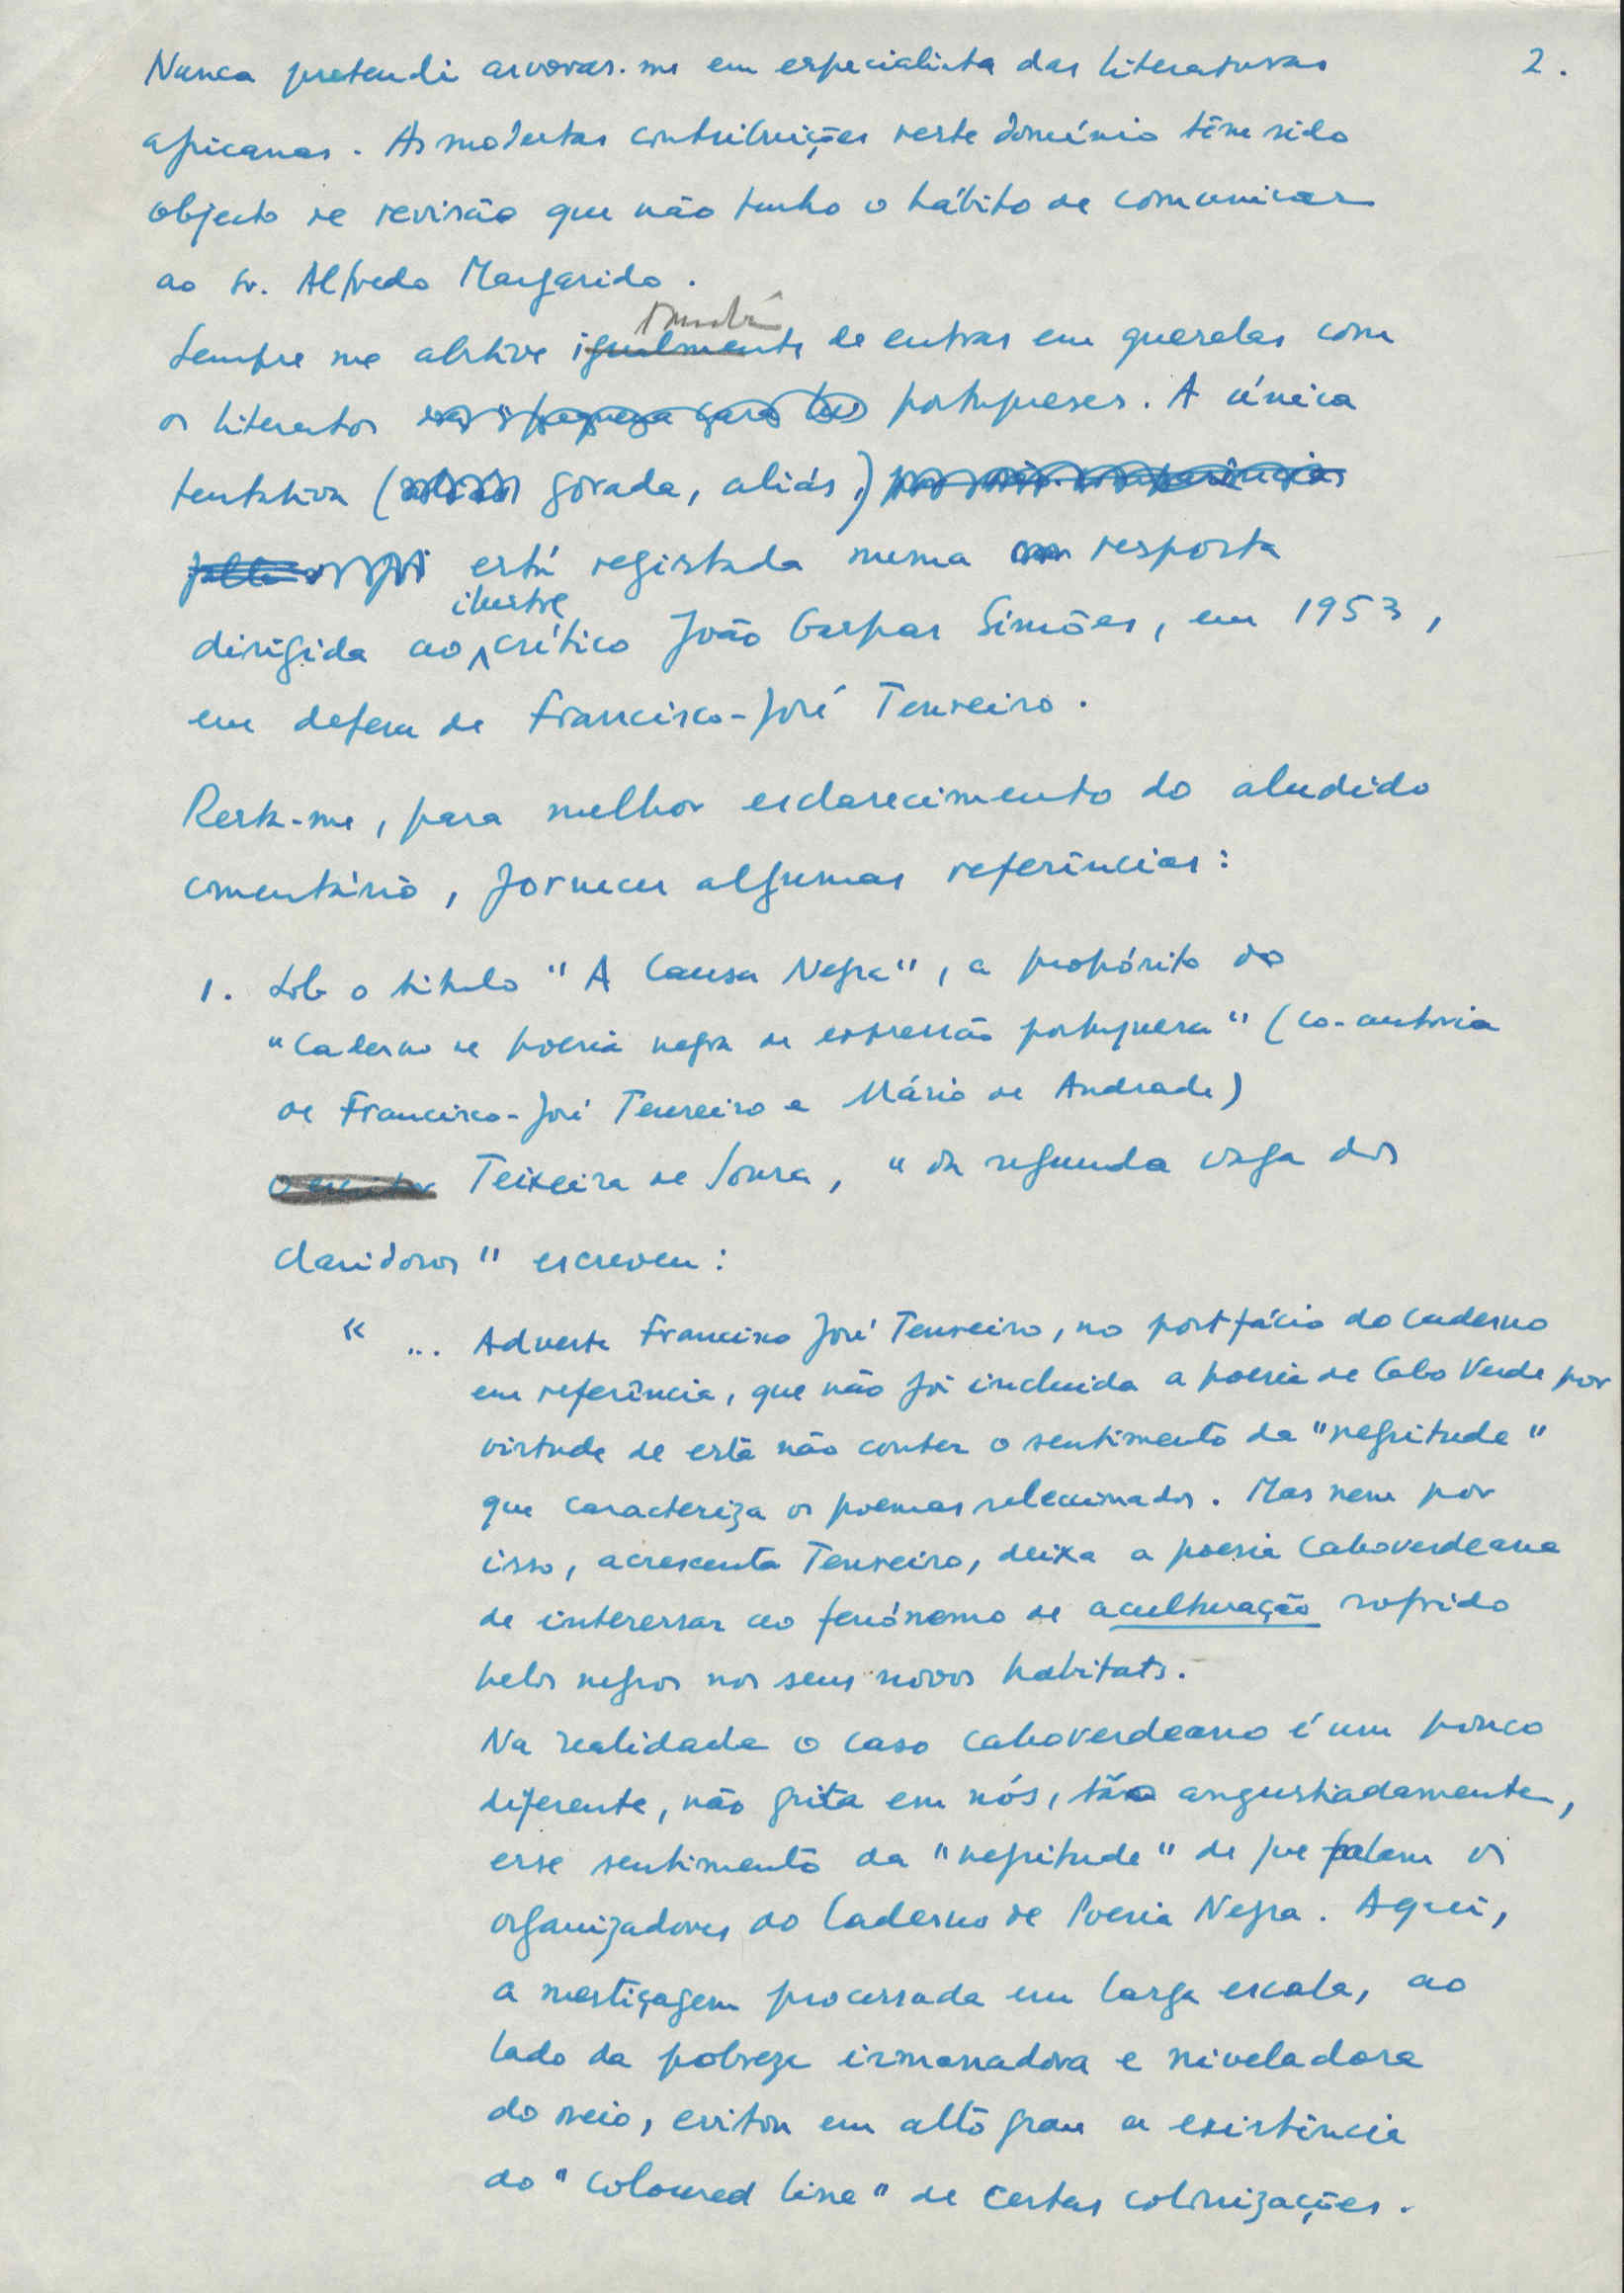 2.
Nunca pretendi arvorar-me em especialista das literaturas
africanas. As modestas contribuições neste domínio têm sido
objecto de revisão que não tenho o hábito de comunicar
ao Sr. Alfredo Margarido.
também
Sempre me abstive igualmente de entrar em querelas com
os literatos portugueses. A única
tentativa (gorada, aliás,)
está registada numa resposta
ilustre
dirigida ao crítico João Gaspar Simões, em 1953,
em defesa de Francisco-José Tenreiro.
Resta-me, para melhor esclarecimento do aludido
comentário, fornecer algumas referências:
1. Sob o título "A Causa Negra", a propósito do
"Caderno de poesia negra de expressão portuguesa" (co-autoria
de Francisco-José Tenreiro e Mário de Andrade)
Teixeira de Sousa, "da segunda vaga dos
claridosos" escreveu:
" ... Adverte Francisco José Tenreiro, no postfácio do caderno
em referência, que não foi incluida a poesia de Cabo Verde por
virtude de esta não conter o sentimento da "negritude"
que caracteriza os poemas seleccionados. Mas nem por
isso, acrescenta Tenreiro, deixa a poesia caboverdeana
de interessar ao fenómeno de aculturação sofrido
pelos negros nos seus novos habitats.
Na realidade o caso caboverdeano é um pouco
diferente, não grita em nós, tão angustiadamente,
esse sentimento da "negritude" de que falam os
organizadores do Caderno de Poesia Negra. Aqui,
a mestiçagem processada em larga escala, ao
lado da pobreza irmanadora e niveladora
do meio, evitou em alto grau a existência
do "coloured line" de certas colonizações.